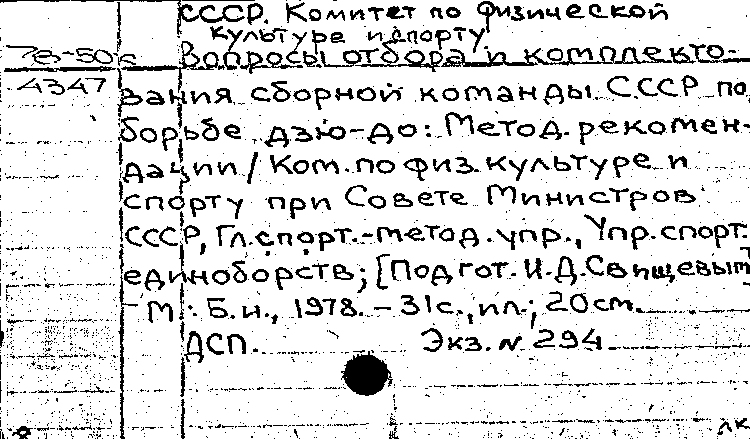 СССР. Комитет по физической
культуре и спорту
78-50с Вопросы отбора и комплекто-
4347 вания сборной команды СССР по
борьбе дзю-до: Метод. рекомен-
дации / Ком. по физ. культуре и
спорту при Совете Министров
СССР, Гл. спорт.-метод. упр., Упр. спорт.
единоборств; [Подгот. И.Д. Свищевым]
- М.: Б.и., 1978. - 31 с., ил.; 20 см.
ДСП. Экз. N 294
лк